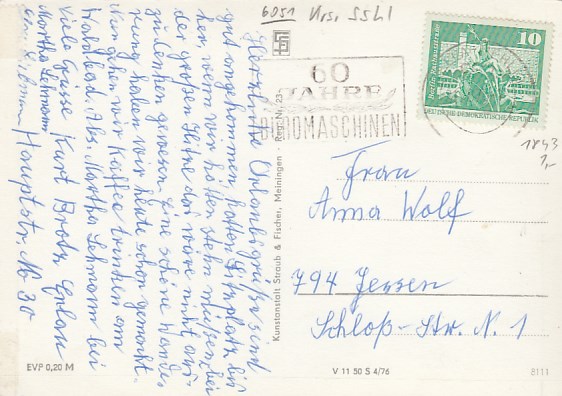 6051
10
Berlin, Neptunbrunnen
DEUTSCHE DEMOKRATISCHE REPUBLIK
60
JAHRE
BÜROMASCHINEN
1843
1,-
Herzliche Urlaubsgrüße sind
gut angekommen, hatten Sitzplatz bis
wenn wir hätten stehn müßen bei
der großen Hitze der wäre nicht aus-
zudenken gewesen eine schöne Wande-
rung haben wir heute schon gemacht.
Nun gehen wir Kaffee trinken am
Waldbad. Abs. Martha Lehmann bei
Viele Grüsse Kurt
Martha Lehmann
Hauptstr. No 30
Kunstanstalt Straub & Fischer, Meiningen Reg.-Nr. 23
Frau
Anna Wolf
794 Jessen
Schloß-Str. N. 1
EVP 0,20 M
V 11 50 S 4/76
8111